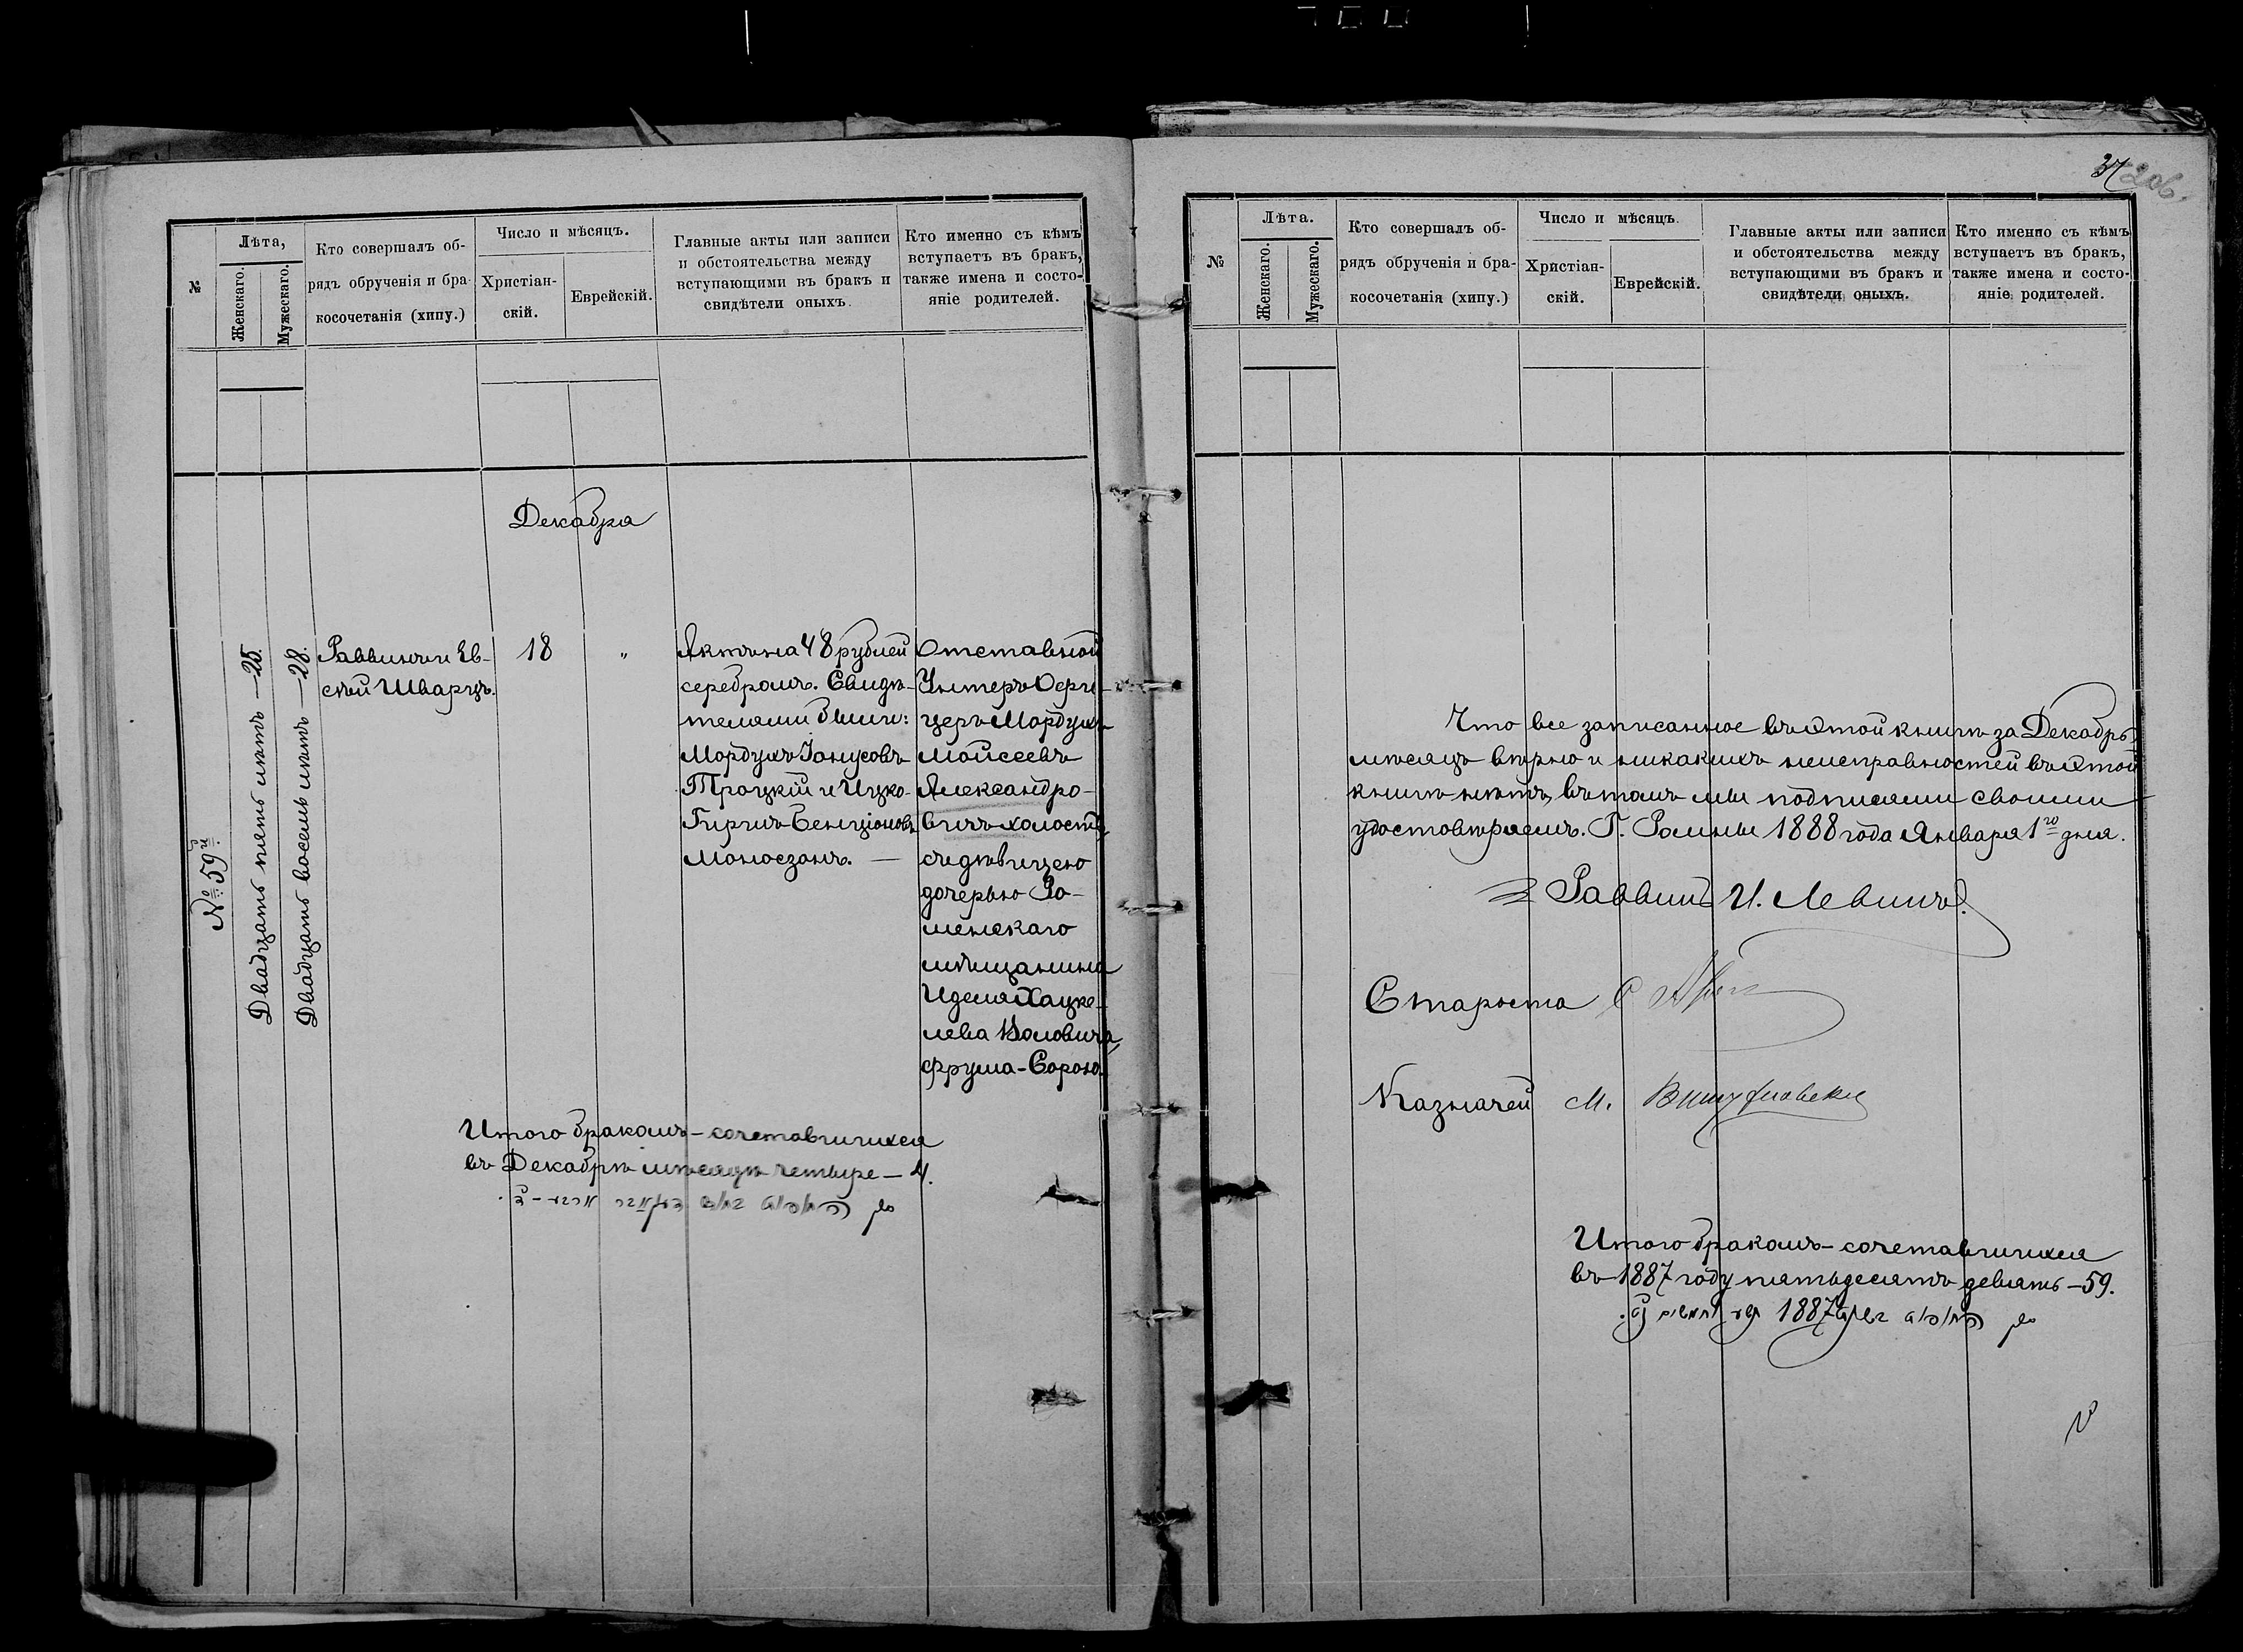 №
Лѣта,
Женскаго.
Мужескаго.
Кто совершалъ об-
рядъ обрученія и бра-
косочетанія (хипу.)
Число и мѣсяцъ.
Христіан-
скій.
Еврейскій.
Главные акты или записи
и обстоятельства между
вступающими въ бракъ и
свидѣтели оныхъ.
Кто именно съ кѣмъ
вступаетъ въ бракъ,
также имена и состо-
яніе родителей.
Декабря
№ 59й
Двадцать пять лѣтъ — 25.
Двадцать восемь лѣтъ — 28.
Раввинъ
Шварцъ.
18
"
Актъ на 48 рублей
серебромъ. Свидѣ-
телями были:
Мордухъ Іонусовъ
Троцкій и Ицко-
Гиршъ Бенціоновъ
Моносзонъ. —
Отставной
Унтеръ Офи-
церъ Мордухъ
Мойсеевъ
Александро-
вичъ холостъ,
съ дѣвицею
дочерью Ро-
менскаго
мѣщанина
Иделя Хацке-
лева Воловича,
Фрума-Сорою.
Итого бракомъ-сочетавшихся
въ Декабрѣ мѣсяцѣ четыре — 4.
37
206.
№
Лѣта.
Женскаго.
Мужескаго.
Кто совершалъ об-
рядъ обрученія и бра-
косочетанія (хипу.)
Число и мѣсяцъ.
Христіан-
скій.
Еврейскій.
Главные акты или записи
и обстоятельства между
вступающими въ бракъ и
свидѣтели оныхъ.
Кто именно съ кѣмъ
вступаетъ въ бракъ,
также имена и состо-
яніе родителей.
Что все записанное въ этой книгѣ за Декабрь
мѣсяцъ вѣрно и никакихъ неисправностей въ этой
книгѣ нѣтъ, въ томъ мы подписями своими
удостовѣряемъ. Г. Ромны 1888 года Января 1го дня.
Раввинъ И. Левинъ.
Староста С
Казначей М.
Итого бракомъ-сочетавшихся
въ 1887 году пятьдесятъ девять — 59.
1887